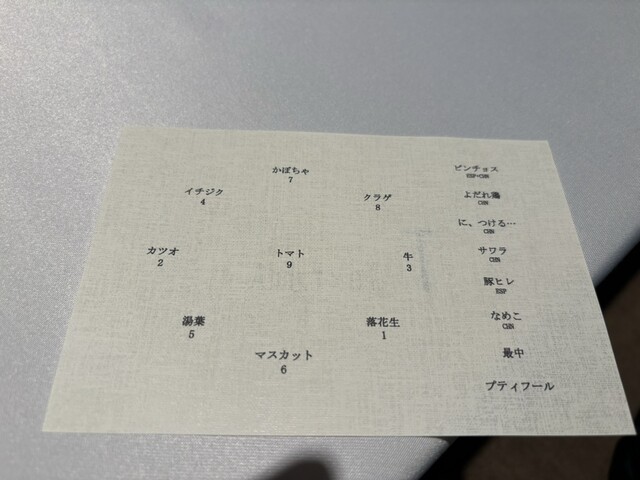 かぼちゃ
7
イチジク
4
クラゲ
8
カツオ
2
トマト
9
牛
3
湯葉
5
落花生
1
マスカット
6
ピンチョス
ESP・CHN
よだれ鶏
CHN
に、つける…
CHN
サワラ
CHN
豚ヒレ
ESP
なめこ
CHN
最中
プティフール